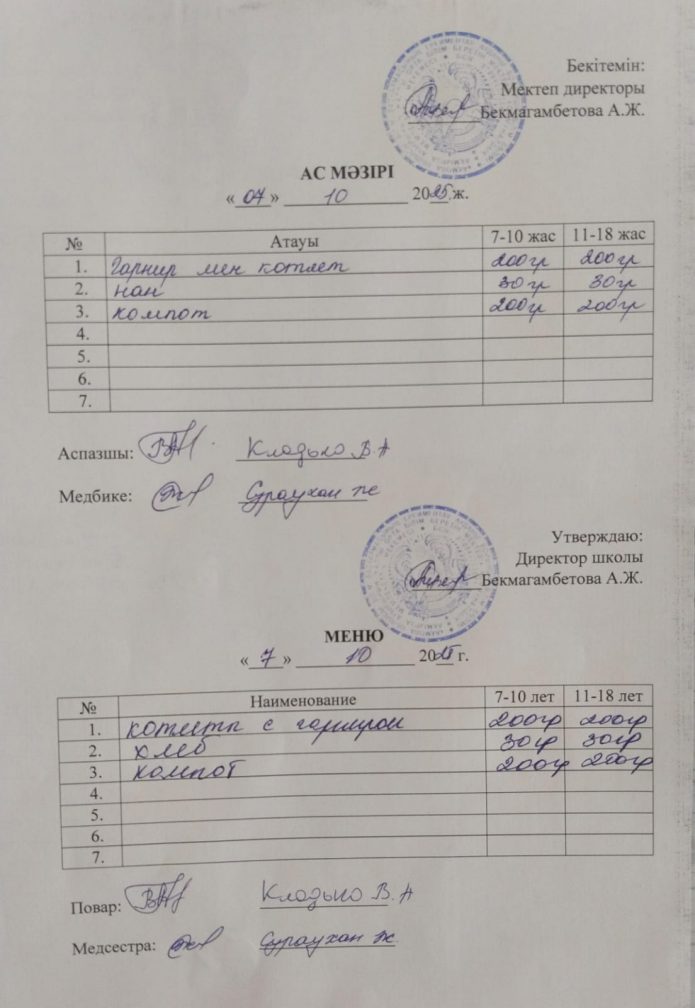 Бекітемін:
Мектеп директоры
Бекмагамбетова А.Ж.
АС МӘЗІРІ
« 07 » 10 2025.ж.
№ Атауы 7-10 жас 11-18 жас
1. Гарнир мен котлет 200гр 200гр
2. нан 30гр 30гр
3. компот 200гр 200гр
4.
5.
6.
7.
Аспазшы: Кладько В.А
Медбике: Сураухан
Утверждаю:
Директор школы
Бекмагамбетова А.Ж.
МЕНЮ
« 7 » 10 2025 г.
№ Наименование 7-10 лет 11-18 лет
1. котлета с гарниром 200гр 200гр
2. хлеб 30гр 30гр
3. компот 200гр 200гр
4.
5.
6.
7.
Повар: Кладько В.А
Медсестра: Сураухан